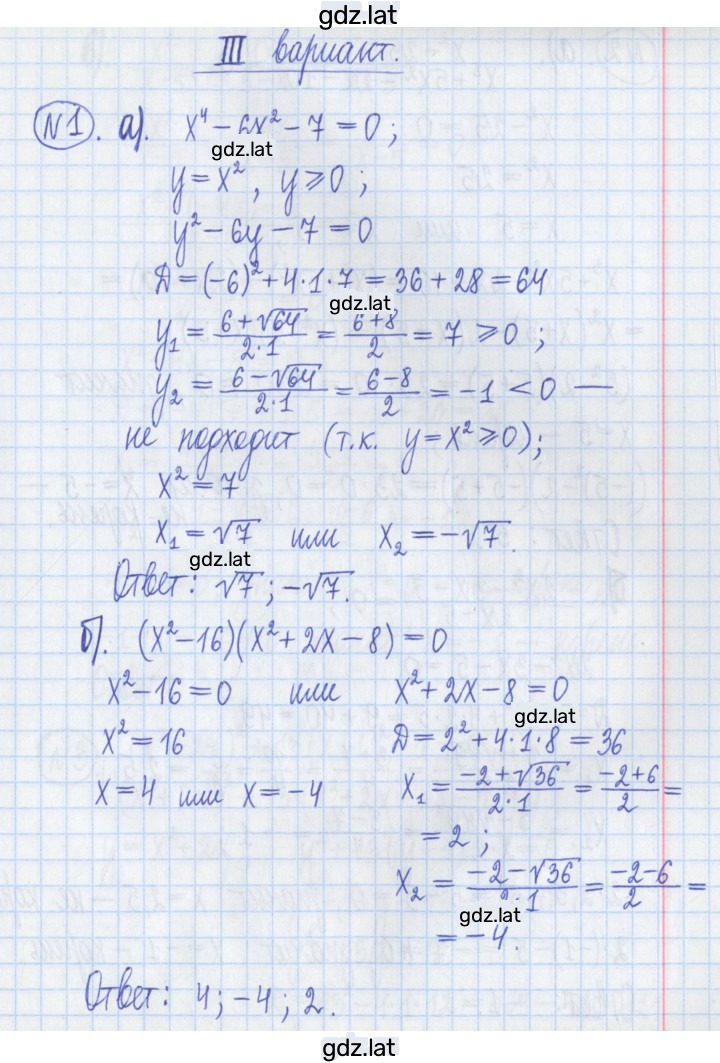 gdz.lat
III вариант.
№1. а). x⁴ − 6x² − 7 = 0 ;
gdz.lat
y = x² , y ⩾ 0 ;
y² − 6y − 7 = 0
Д = (−6)² + 4·1·7 = 36 + 28 = 64
gdz.lat
y₁ = (6 + √64)/(2·1) = (6+8)/2 = 7 ⩾ 0 ;
y₂ = (6 − √64)/(2·1) = (6−8)/2 = −1 < 0 —
не подходит (т.к. y = x² ⩾ 0);
x² = 7
x₁ = √7 или x₂ = −√7.
gdz.lat
Ответ: √7 ; −√7.
б). (x² − 16)(x² + 2x − 8) = 0
x² − 16 = 0 или x² + 2x − 8 = 0
gdz.lat
x² = 16 Д = 2² + 4·1·8 = 36
x = 4 или x = −4 x₁ = (−2 + √36)/(2·1) = (−2+6)/2 =
= 2 ;
x₂ = (−2 − √36)/(2·1) = (−2−6)/2 =
gdz.lat
= −4.
Ответ: 4 ; −4 ; 2.
gdz.lat